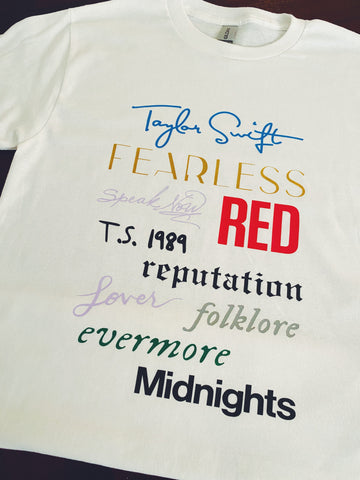 Taylor Swift
FEARLESS
Speak Now
RED
T.S. 1989
reputation
Lover
folklore
evermore
Midnights